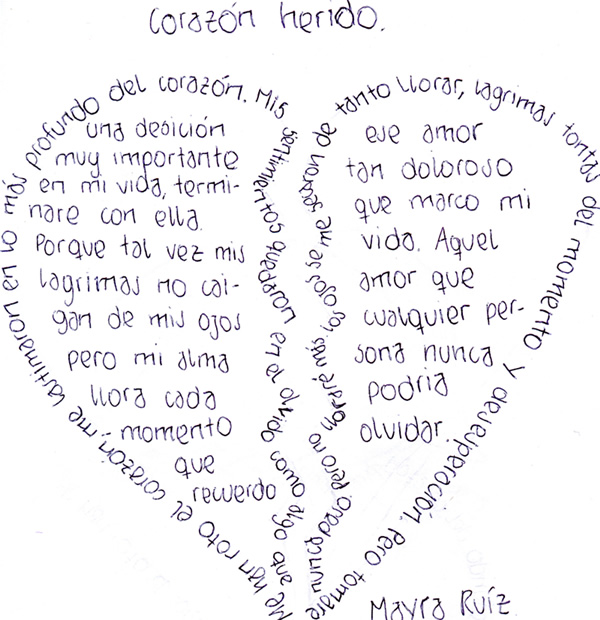 Corazón herido.
Me han roto el corazón, me lastimaron en lo más profundo del corazón. Mis sentimientos quedaron en como algo que
nunca pasó. Pero no lloraré más, ojos se me secaron de tanto llorar, lagrimas tontas del momento y desesperación. Pero tomare
una desición
muy importante
en mi vida, termi-
nare con ella.
Porque tal vez mis
lagrimas no cai-
gan de mis ojos
pero mi alma
llora cada
momento
que
recuerdo
ese amor
tan doloroso
que marco mi
vida. Aquel
amor que
cualquier per-
sona nunca
podria
olvidar.
Mayra Ruíz.